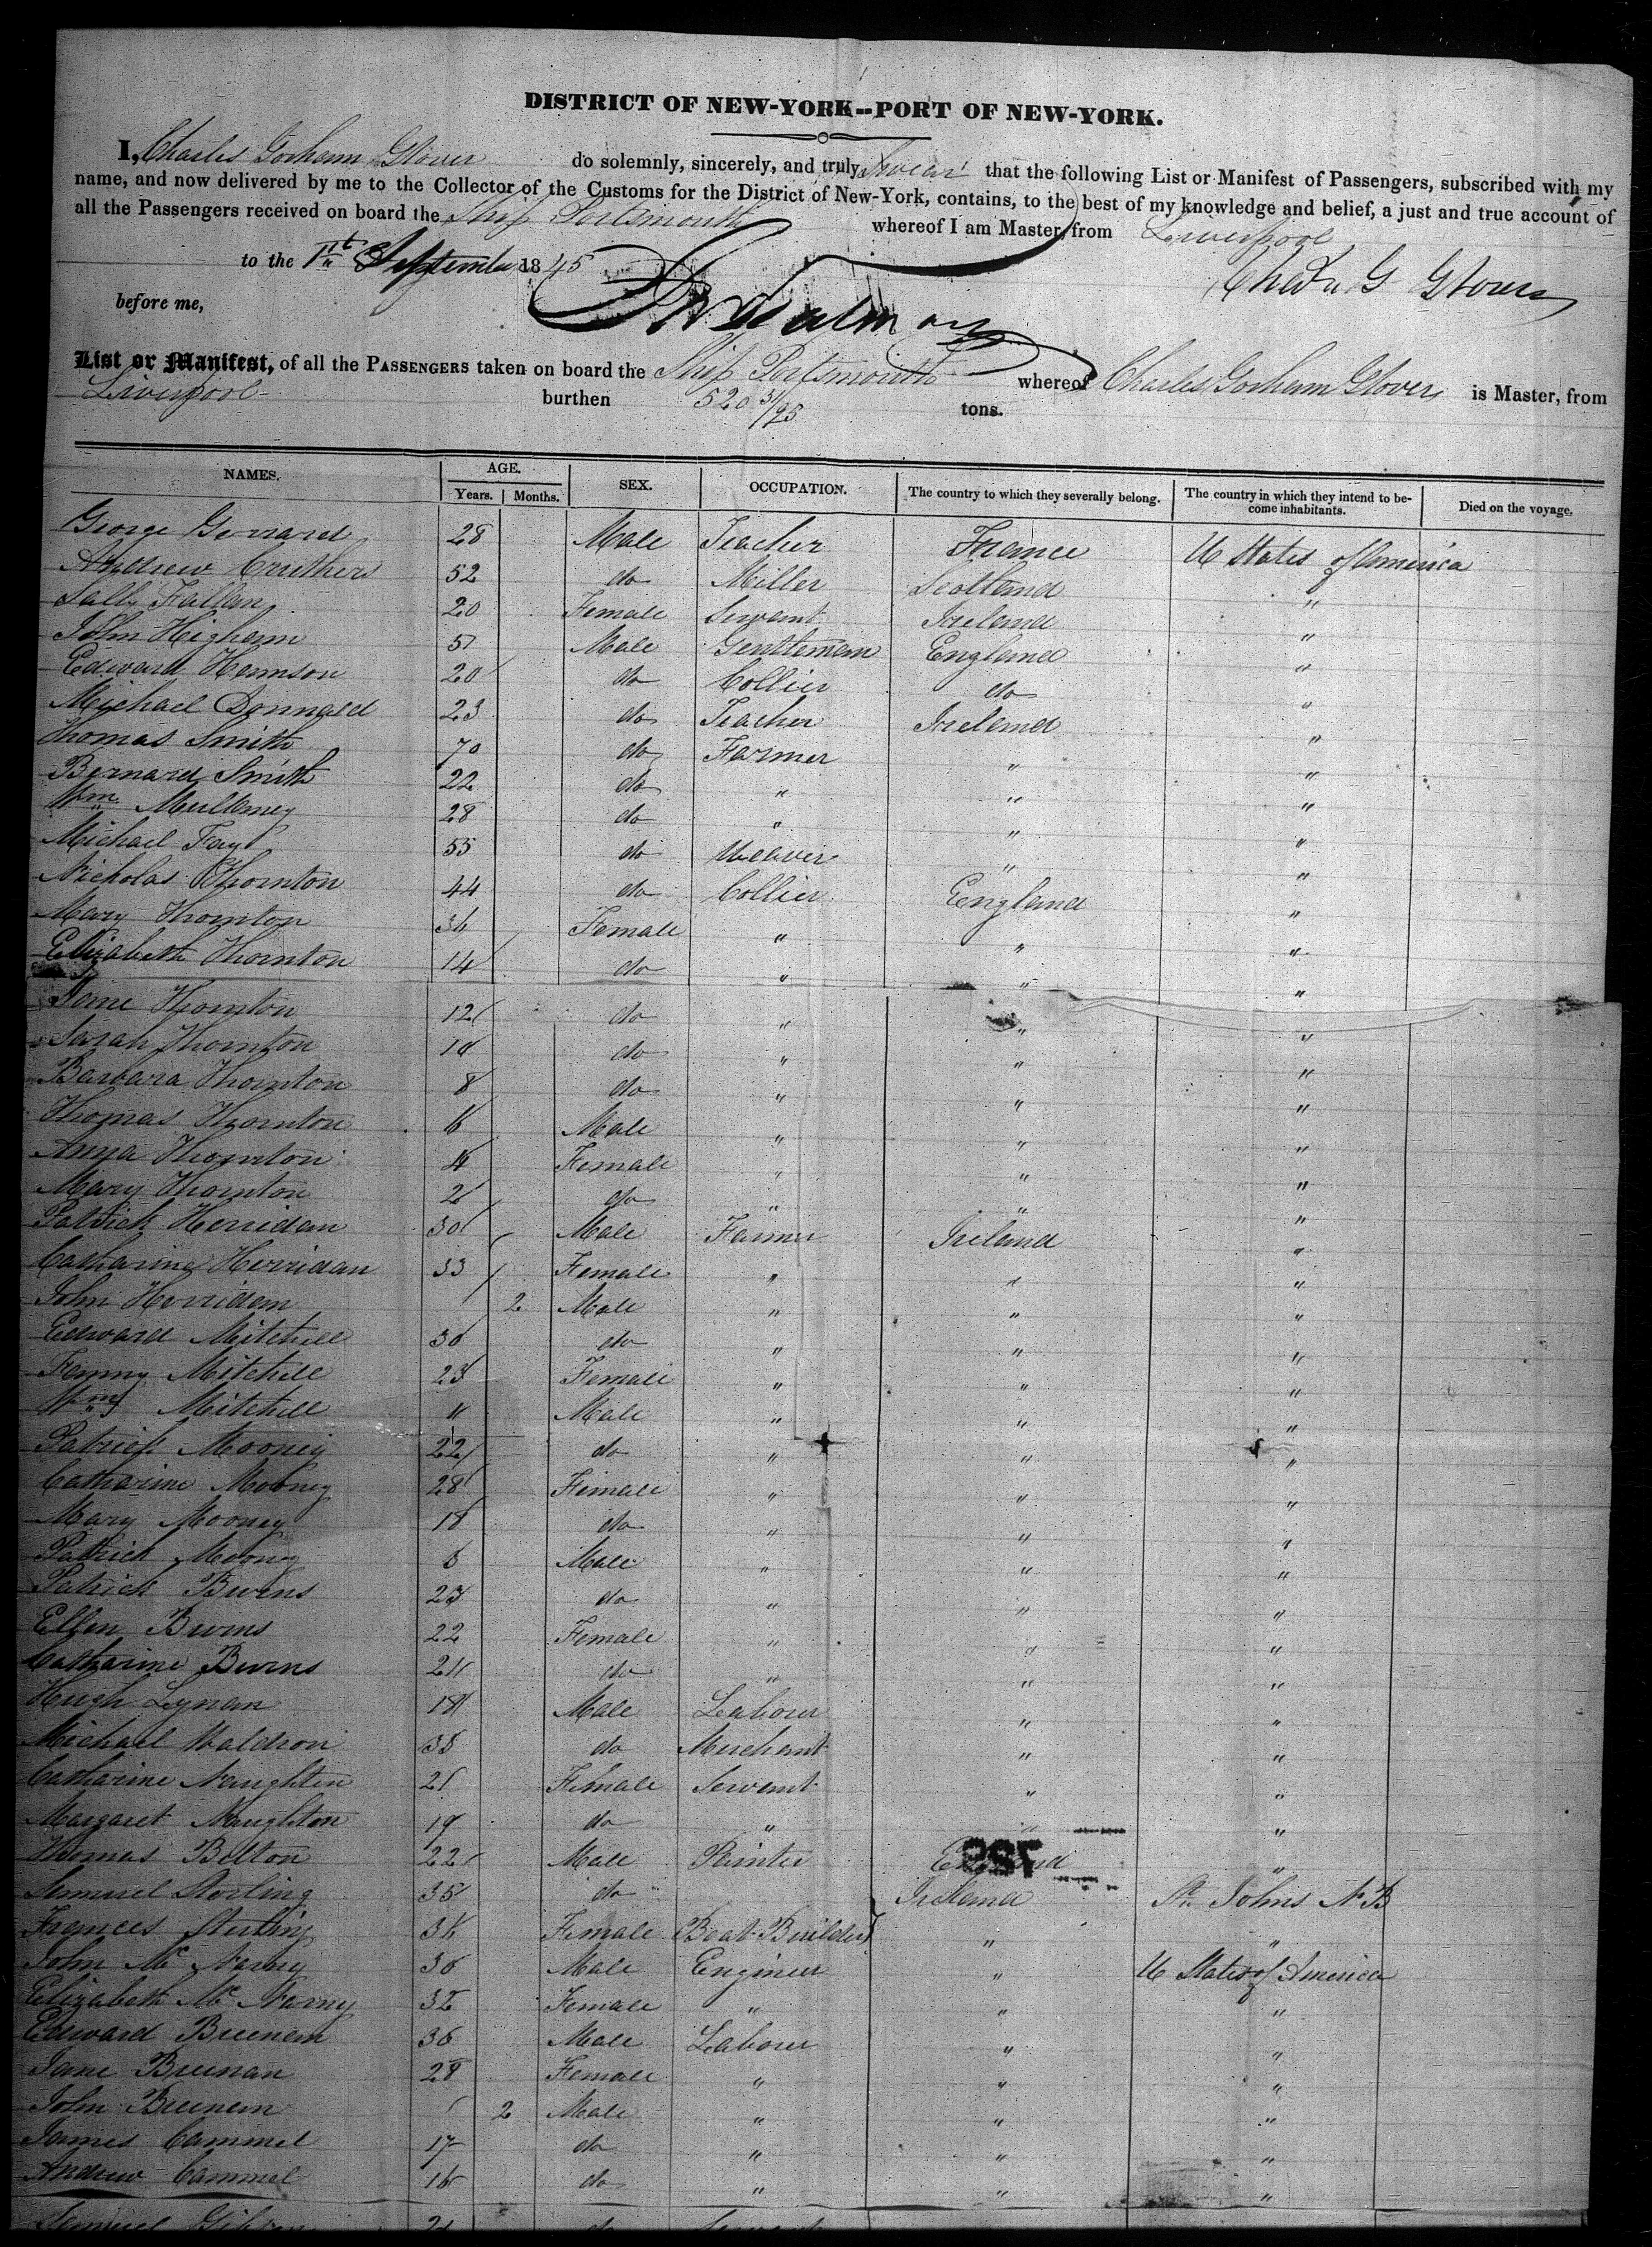 DISTRICT OF NEW-YORK--PORT OF NEW-YORK.
I, Charles Gorham Glover do solemnly, sincerely, and truly Swear that the following List or Manifest of Passengers, subscribed with my
name, and now delivered by me to the Collector of the Customs for the District of New-York, contains, to the best of my knowledge and belief, a just and true account of
all the Passengers received on board the Ship Portsmouth whereof I am Master, from Liverpool
to the 1st September 1845
Chas G Glover
before me,
List or Manifest, of all the PASSENGERS taken on board the Ship Portsmouth whereof Charles Gorham Glover is Master, from
Liverpool burthen 520 31/95 tons.
NAMES. AGE. SEX. OCCUPATION. The country to which they severally belong. The country in which they intend to be- Died on the voyage.
Years. Months. come inhabitants.
George Gerrard 28 Male Teacher France U States of America
Andrew Cruthers 52 do Miller Scotland "
Sally Fallan 20 Female Servant Ireland "
John Higham 51 Male Gentleman England "
Edward Hamson 20 do Collier do "
Michael Donnald 23 do Teacher Ireland "
Thomas Smith 70 do Farmer " "
Bernard Smith 22 do " " "
Wm Mullaney 28 do " " "
Michael Fay 55 do Weaver " "
Nicholas Thornton 44 do Collier England "
Mary Thornton 36 Female " " "
Elizabeth Thornton 14 do " " "
Jane Thornton 12 do " " "
Sarah Thornton 10 do " " "
Barbara Thornton 8 do " " "
Thomas Thornton 6 Male " " "
Anna Thornton 4 Female " " "
Mary Thornton 2 do " " "
Patrick Herridan 30 Male Farmer Ireland "
Catharine Herridan 33 Female " " "
John Herridan 2 Male " " "
Edward Mitchell 30 do " " "
Fanny Mitchell 23 Female " " "
Wm Mitchell Male " " "
Patrick Mooney 22 do " " "
Catharine Mooney 28 Female " " "
Mary Mooney 18 do " " "
Patrick Mooney 6 Male " " "
Patrick Burns 23 do " " "
Ellen Burns 22 Female " " "
Catharine Burns 21 do " " "
Hugh Lynan 18 Male Labour " "
Michael Waldron 35 do Merchant " "
Catharine Naughten 21 Female Servant " "
Margaret Naughton 19 do " " "
Thomas Belton 22 Male Painter England "
Samuel Sterling 35 do Ireland St. Johns N B
Frances Sterling 36 Female Boat Builder " "
John Mc Narny 30 Male Engineer " U States of America
Elizabeth Mc Narny 32 Female " " "
Edward Breenan 36 Male Labour " "
Jane Breenan 28 Female " " "
John Breenan 2 Male " " "
James Cammel 17 do " " "
Andrew Cammel 16 do " " "
Samuel